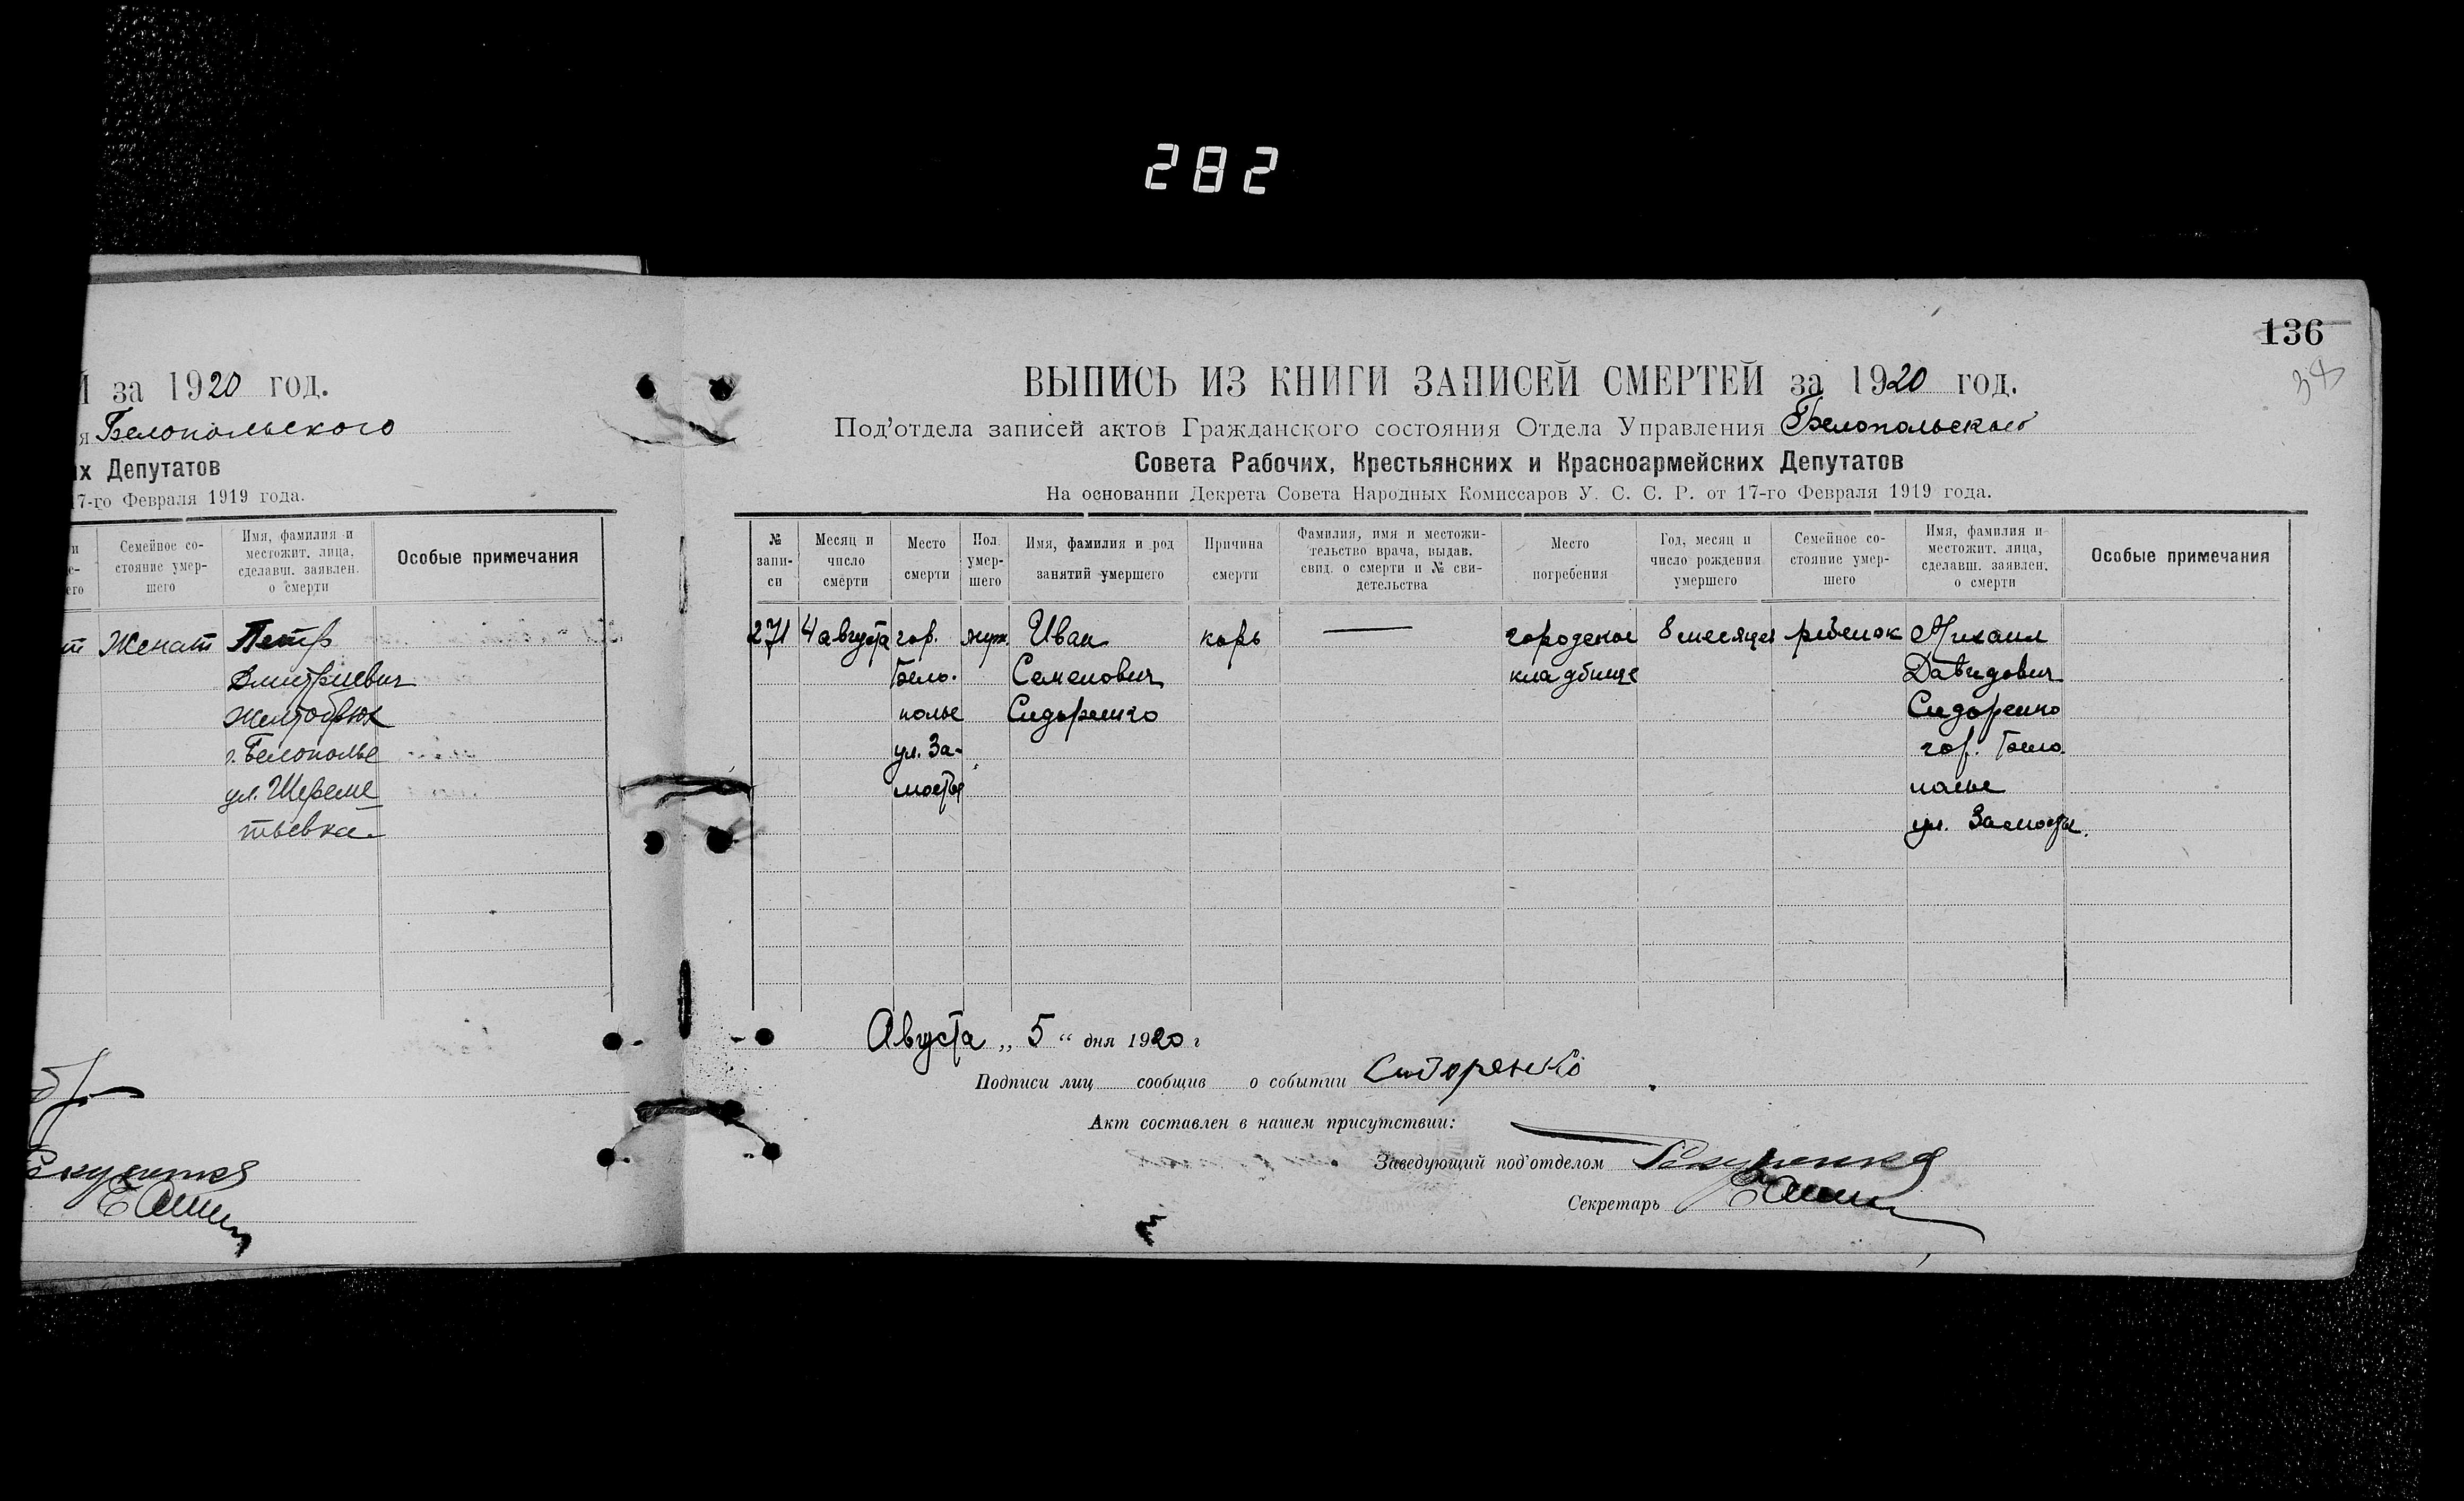 282
136
38
Й за 1920 год.
я Белопольского
их Депутатов
17-го Февраля 1919 года.
и
е-
его
Семейное со-
стояние умер-
шего
Имя, фамилия и
местожит. лица,
сделавш. заявлен.
о смерти
Особые примечания
т Женат Петр
Дмитриевич
Желтобрюх
г. Белополье
ул. Шереме
тьевка.
ВЫПИСЬ ИЗ КНИГИ ЗАПИСЕЙ СМЕРТЕЙ за 1920 год.
Под'отдела записей актов Гражданского состояния Отдела Управления Белопольского
Совета Рабочих, Крестьянских и Красноармейских Депутатов
На основании Декрета Совета Народных Комиссаров У. С. С. Р. от 17-го Февраля 1919 года.
№
запи-
си
Месяц и
число
смерти
Место
смерти
Пол
умер-
шего
Имя, фамилия и род
занятий умершего
Причина
смерти
Фамилия, имя и местожи-
тельство врача, выдав.
свид. о смерти и № сви-
детельства
Место
погребения
Год, месяц и
число рождения
умершего
Семейное со-
стояние умер-
шего
Имя, фамилия и
местожит. лица,
сделавш. заявлен.
о смерти
Особые примечания
271 4 августа гор. муж. Иван корь — городское 8 месяцев ребенок Михаил
Бело- Семенович кладбище Давидович
полье Сидоренко Сидоренко
ул. За- гор. Бело-
мостье полье
ул. Замостье.
Августа „ 5 “ дня 1920 г
Подписи лиц сообщив о событии Сидоренко
Акт составлен в нашем присутствии:
Заведующий под'отделом
Секретарь